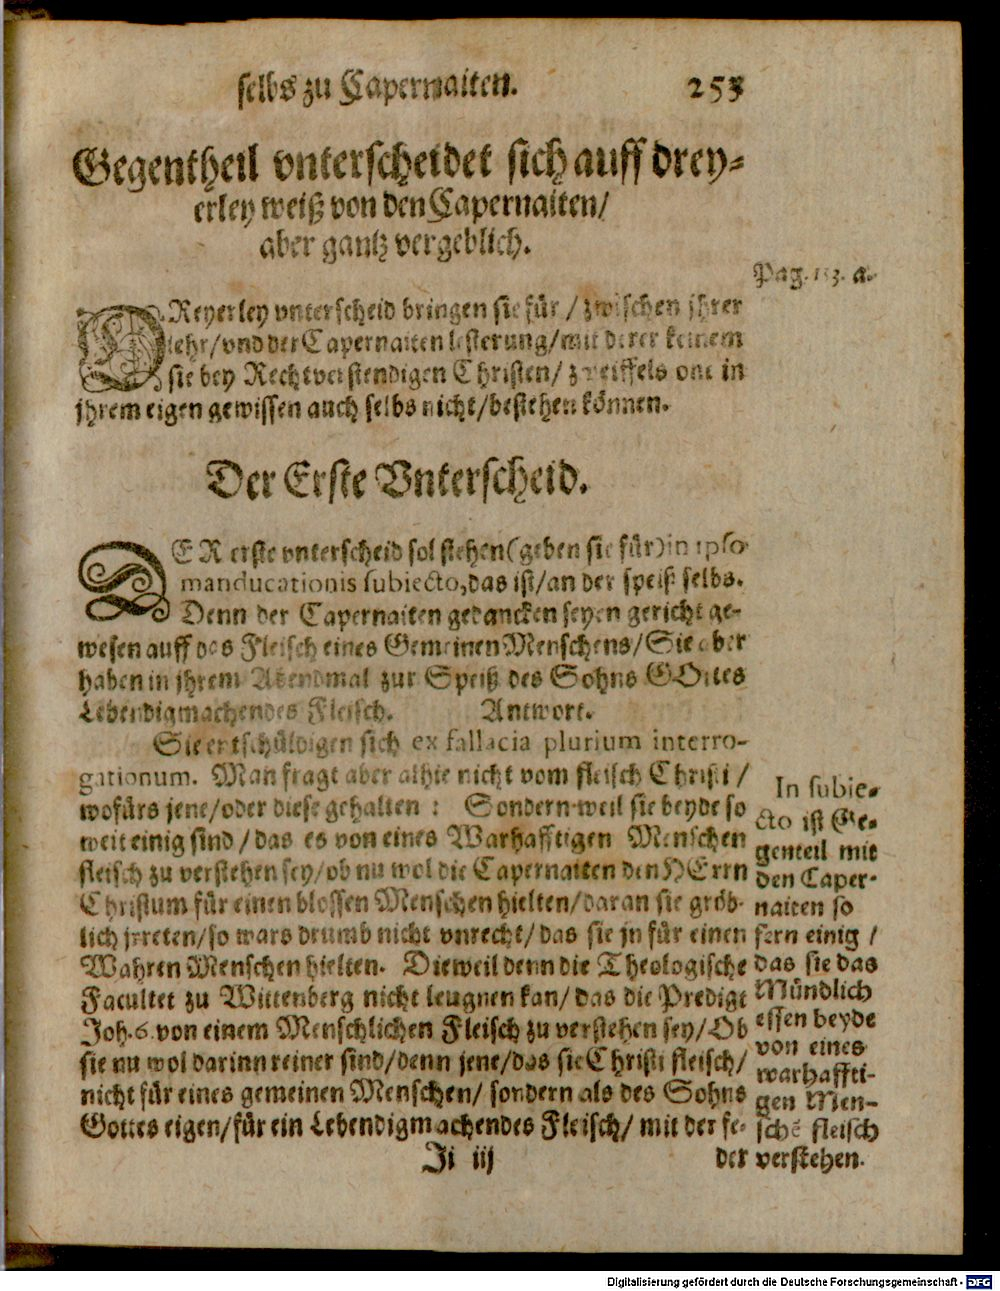 selbs zu Capernaiten. 253
Gegentheil vnterscheidet sich auff drey-
erley weiß von den Capernaiten/
aber gantz vergeblich.
Pag. 153. a.
DReyerley vnterscheid bringen sie für/ zwischen jhrer
lehr/ vnd der Capernaiten lesterung/ mit derer keinem
sie bey Rechtverstendigen Christen/ zweiffels one in
jhrem eigen gewissen auch selbs nicht/ bestehen können.
Der Erste Vnterscheid.
DER erste vnterscheid sol stehen (geben sie für) in ipso
manducationis subiecto, das ist/ an der speiß selbs.
Denn der Capernaiten gedancken seyen gericht ge-
wesen auff das Fleisch eines Gemeinen Menschens/ Sie aber
haben in jhrem Abendmal zur Speiß des Sohns GOttes
Lebendigmachendes Fleisch. Antwort.
Sie entschüldigen sich ex fallacia plurium interro-
gationum. Man fragt aber alhie nicht vom fleisch Christi/
wofürs jene/ oder diese gehalten: Sondern weil sie beyde so
weit einig sind/ das es von eines Warhafftigen Menschen
fleisch zu verstehen sey/ ob nu wol die Capernaiten den HErrn
Christum für einen blossen Menschen hielten/ daran sie gröb-
lich jrreten/ so wars drumb nicht vnrecht/ das sie jn für einen
Wahren Menschen hielten. Dieweil denn die Theologische
Facultet zu Wittenberg nicht leugnen kan/ das die Predigt
Joh. 6. von einem Menschlichen Fleisch zu verstehen sey/ Ob
sie nu wol darinn reiner sind/ denn jene/ das sie Christi fleisch/
nicht für eines gemeinen Menschen/ sondern als des Sohns
Gottes eigen/ für ein Lebendigmachendes Fleisch/ mit der fe-
Ji iij der
In subie-
cto ist Ge-
genteil mit
den Caper-
naiten so
fern einig/
das sie das
Mündlich
essen beyde
von eines
warhaffti-
gen Men-
schē fleisch
verstehen.
Digitalisierung gefördert durch die Deutsche Forschungsgemeinschaft - DFG